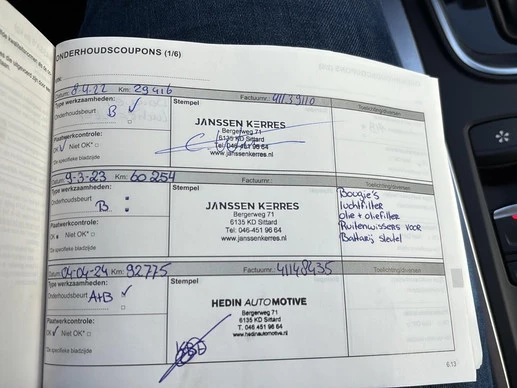 ONDERHOUDSCOUPONS (1/6)
Datum: 8.4.22 Km: 29416 Factuurnr.: 41139110
Type werkzaamheden: Stempel Toelichting/diversen
Onderhoudsbeurt B ✓
Plaatwerkcontrole:
OK ✓ Niet OK*
*Zie specifieke bladzijde
JANSSEN KERRES
Bergerweg 71
6135 KD Sittard
Tel: 046-451 96 64
www.janssenkerres.nl
Datum: 9-3-23 Km: 60254 Factuurnr.:
Type werkzaamheden: Stempel Toelichting/diversen
Onderhoudsbeurt B
Plaatwerkcontrole:
OK Niet OK*
*Zie specifieke bladzijde
JANSSEN KERRES
Bergerweg 71
6135 KD Sittard
Tel: 046-451 96 64
www.janssenkerres.nl
Bougie's
luchtfilter
olie + oliefilter
Ruitenwissers voor
Batterij sleutel
Datum: 04-04-24 Km: 92775 Factuurnr.: 41148435
Type werkzaamheden: Stempel Toelichting/diversen
Onderhoudsbeurt A+B ✓
Plaatwerkcontrole:
OK ✓ Niet OK*
*Zie specifieke bladzijde
HEDIN AUTOMOTIVE
Bergerweg 71
6135 KD Sittard
T. 046 451 96 64
www.hedinautomotive.nl
6.13